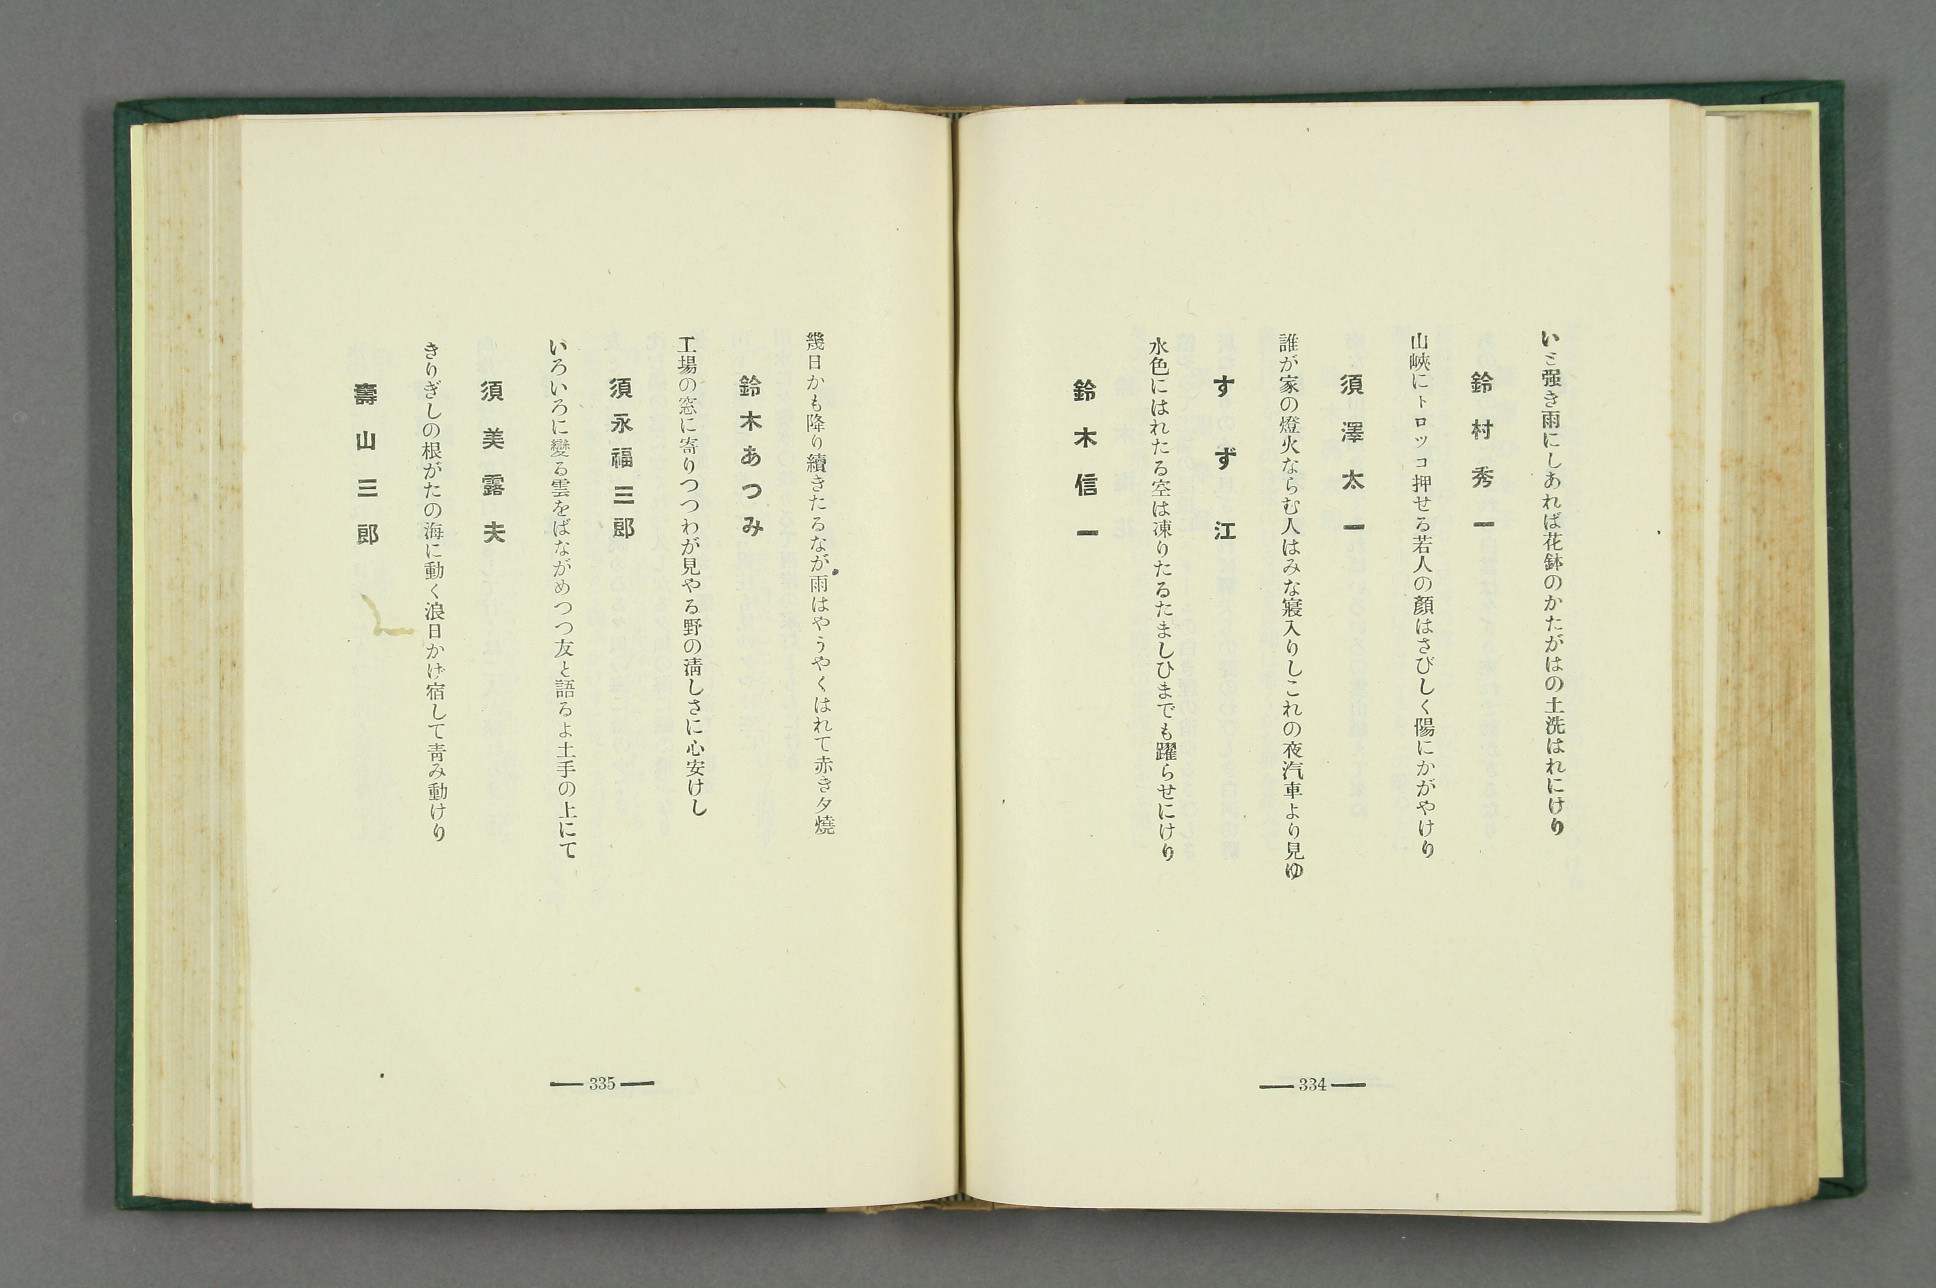 いと强き雨にしあれば花鉢のかたがはの土洗はれにけり
鈴村秀一
山峽にトロツコ押せる若人の顏はさびしく陽にかがやけり
須澤太一
誰が家の燈火ならむ人はみな寢入りしこれの夜汽車より見ゆ
すず江
水色にはれたる空は凍りたるたましひまでも躍らせにけり
鈴木信一
334
幾日かも降り續きたるなが雨はやうやくはれて赤き夕燒
鈴木あつみ
工場の窓に寄りつつわが見やる野の淸しさに心安けし
須永福三郎
いろいろに變る雲をばながめつつ友と語るよ土手の上にて
須美露夫
きりぎしの根がたの海に動く浪日かげ宿して靑み動けり
壽山三郎
335